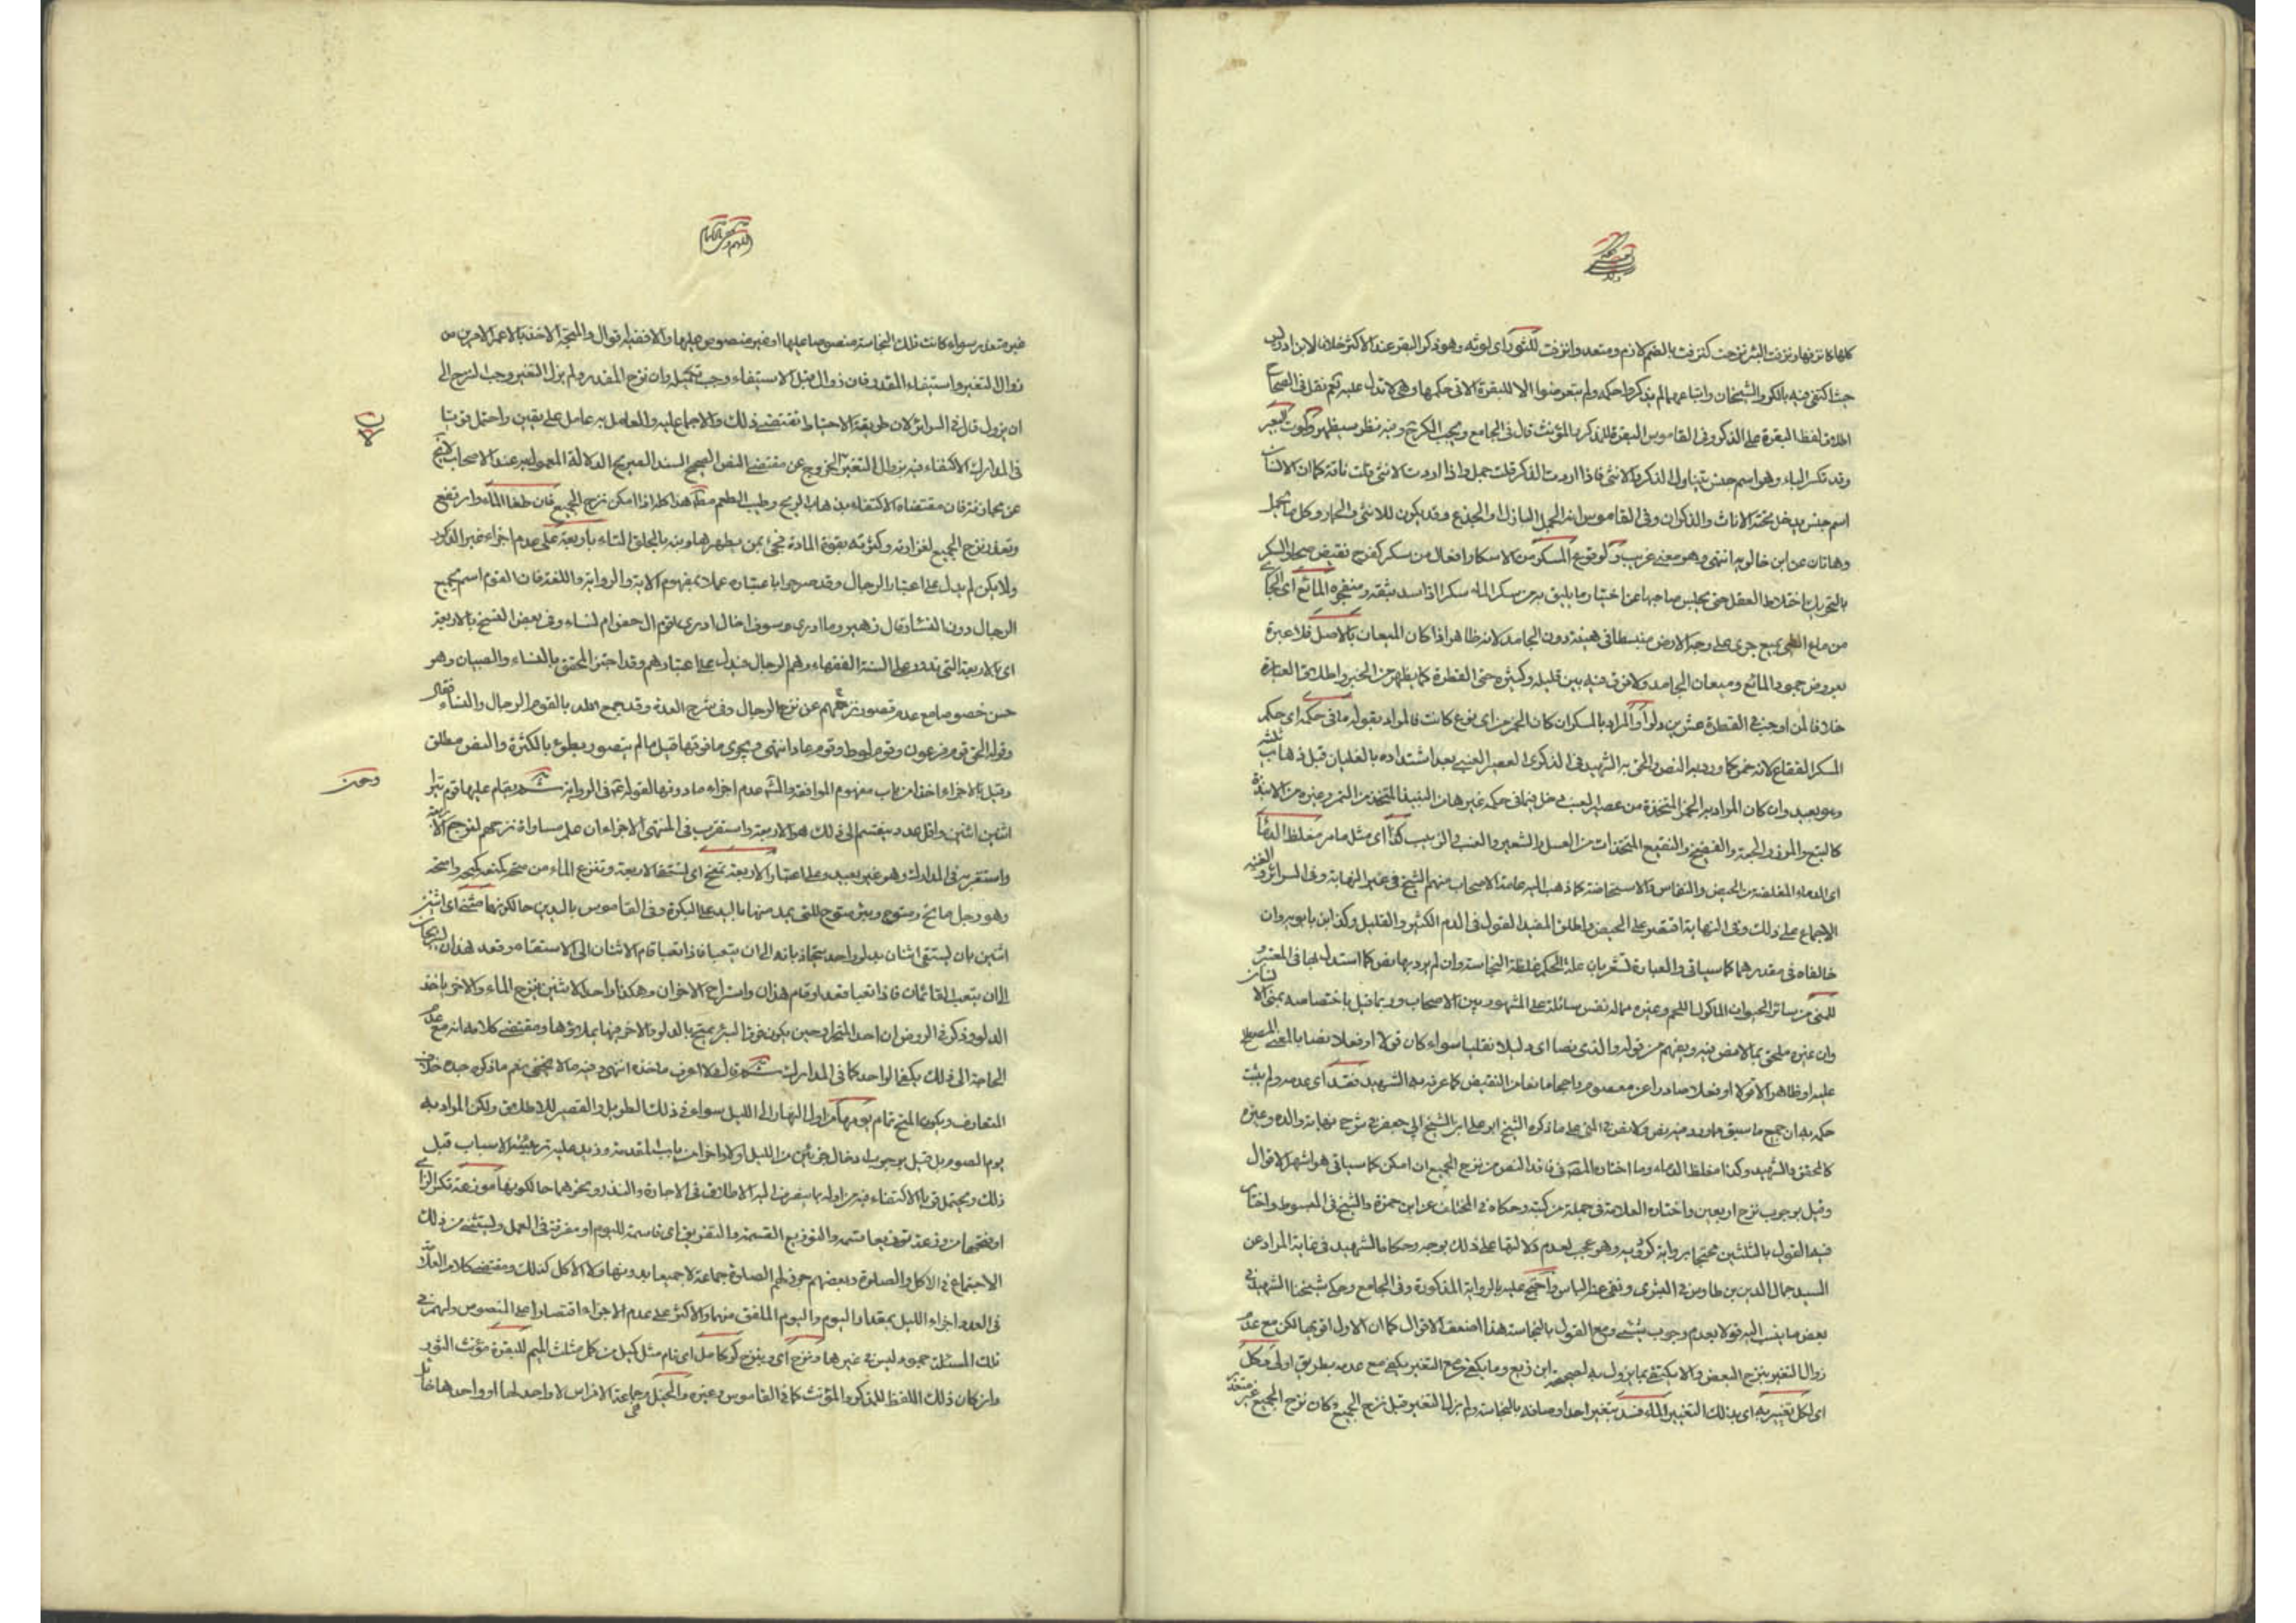 كلها كانزفها ونزفت البئر نزحت كنزفت بالضم لازم ومتعد وانزفت للثور اى لموته وهو ذكر البقر عند الاكثر خلافا لابن ادريس
حيث اكتفى فيه بالكر والشيخان واتباعهما لم يذكروا حكمه ولم يتعرضوا الا للبقرة الاتى حكمها وهى لا تدل عليه نعم نقل فى الصحاح
اطلاق لفظ البقرة على الذكر وفى القاموس البقرة للمذكر والمؤنث قال فى الجامع ويجب الكر فيه نظر سيظهر ولموت البعير
وقد تكسر الباء وهو اسم جنس يتناول الذكر والانثى فاذا اردت الذكر قلت جمل واذا اردت الانثى قلت ناقة كما ان الانسان
اسم جنس يدخل تحته الاناث والذكران وفى القاموس انه الجمل البازل او الجذع وقد يكون للانثى والحمار وكل ما يحمل
وهاتان عن ابن خالويه انتهى وهو معنى غريب ولوقوع المسكر من الاسكار افعال من سكر كفرح نقيض صحا والسكر
بالتحريك اختلاط العقل حتى يجلس صاحبها عن اختيار ما يليق به من سكر الماء سكرا اذا سد بثقه ومنفجره المائع اى الجارى
من ماع الشئ يميع جرى على وجه الارض منبسطا فى هيئة دون الجامد لانه طاهر اذا كان الميعان بالاصل فلا عبرة
بعروض جمود المائع وميعان الجامد ولا فرق فيه بين قليله وكثيره حتى القطرة كما يظهر من الخبر واطلاق العبارة
خلافا لمن اوجب فى القطرة عشرين دلوا والمراد بالمسكر ان كان الخمر من اى نوع كانت فالمراد بقوله ما فى حكمه اى حكم
المسكر الفقاع لانه خمر كما ورد به النص والحق به الشهيد فى الذكرى العصير العنبى بعد اشتداده بالغليان قبل ذهاب ثلثيه
وهو بعيد وان كان المراد به الخمر المتخذة من عصير العنب دخل فيما فى حكمه غيرها من النبيذ المتخذ من التمر وغيره من الانبذة
كالبتع والمزر والجعة والفضيخ والنقيع المتخذات من العسل والشعير والعنب والزبيب كذا اى مثل ما مر مغلظ الدماء
اى الدماء المغلظة من الحيض والنفاس والاستحاضة كما ذهب اليه عامة الاصحاب منهم الشيخ فى غير النهاية وفى السرائر والغنية
الاجماع على ذلك وفى النهاية اقتصر على الحيض واطلق المفيد القول فى الدم الكثير والقليل وكذا ابن بابويه وان
خالفاه فى مقدرهما كما سياتى والعبارة تشعر بان علة الحكم غلظة النجاسة وان لم يرد بها نص كما استدل بها فى المعتبر
للمنى من سائر الحيوان الماكول اللحم وغيره مما له نفس سائلة على المشهور بين الاصحاب وربما قيل باختصاصه بمنى الانسان
وان غيره ملحق بما لا نص فيه ويفهم من قوله والذى نصا اى دليلا نقليا سواء كان قولا او فعلا نصا بالمعنى المصطلح
عليه او ظاهرا قولا او فعلا صادرا عن معصوم راجحا مانعا من النقيض كما عرفه به الشهيد فقد اى عدمه ولم يثبت
حكمه به ان جميع ما سبق ما ورد فيه نص ولا نص فى المنى على ما ذكره الشيخ ابو على ابن الشيخ ابى جعفر فى شرح نهاية والده وغيره
كالمحقق والشهيد وكذا مغلظ الدماء وما اختاره المصنف فى فاقد النص من نزح الجميع ان امكن كما سياتى هو اشهر الاقوال
وقيل بوجوب نزح اربعين واختاره العلامة فى جملة من كتبه وحكاه فى المختلف عن ابن حمزة والشيخ فى المبسوط واختار
فيها القول بالثلثين محتجا برواية كردويه وهو عجب لعدم دلالتها على ذلك بوجه وحكاها الشهيد فى غاية المراد عن
السيد جمال الدين بن طاوس فى البشرى ونفى عنه الباس واحتج عليه بالرواية المذكورة وفى الجامع وحكى شيخنا الشهيد فى
بعض ما ينسب اليه قولا بعدم وجوب شئ ومع القول بالنجاسة هذا اضعف الاقوال كما ان الاول اقويها لكن مع عدم
زوال التغير بنزح البعض والا يكتفى بما يزول به لصحيحة ابن بزيع وما يكفى مع التغير يكفى مع عدمه بطريق اولى وكل
اى لكل تغيير به اى بذلك التغيير الماء فسد بتغير احد اوصافه بالنجاسة ولم يزل التغير قبل نزح الجميع وكان نزح الجميع غير متعذر
غير متعذر سواء كانت تلك النجاسة منصوصا عليها او غير منصوص عليها والا ففيه اقوال والمتجه الاخذ بالاعم الامرين من
زوال التغير واستيفاء المقدر فان زوال قبل الاستيفاء وجب تكميله وان نزح المقدر ولم يزل التغير وجب النزح الى
ان يزول قال فى السرائر لان طريقة الاحتياط تقتضى ذلك والاجماع عليه والعامل به عامل على يقين واحتمل قويا
فى المدارك الاكتفاء فيه بزوال التغير والخروج عن مقتضى النص الصحيح السند الصريح الدلالة المعمول به عند الاصحاب لا يخ
عن مجازفة فان مقتضاه الاكتفاء بذهاب الريح وطيب الطعم مطلقا هذا كله اذا امكن نزح الجميع فان طغا الماء وارتفع
وتعذر نزح الجميع لغزارته وكثرته بقوة المادة فجئ بمن يطهرها وينه بالجلق الثناء باربعة على عدم اجزاء غير الذكور
ولا يكن لم يدل على اعتبار الرجال وقد صرحوا باعتباره عملا بمفهوم الاية والرواية واللغة فان القوم اسم لجميع
الرجال دون النساء قال زهير وما ادرى وسوف اخال ادرى اقوم ال حصن ام نساء وفى بعض النسخ بالاربعة
اى بالاربعة التى تدور على السنة الفقهاء وهم الرجال فيدل على اعتبارهم وقد اجتزى المحقق بالنساء والصبيان وهو
حسن خصوصا مع عدم قصور نزحهم عن نزح الرجال وفى شرح العدة وقد يجمع الله بالقوم الرجال والنساء فقال
وقوله الحق قوم فرعون وقوم لوط وقوم عاد انتهى ويجزى ما فوقها قيل ما لم يتصور بطؤ بالكثرة والنص مطلق
وقيل بالاجزاء اخذا من باب مفهوم الموافقة والشه عدم اجزاء ما دونها لقوله ع فى الرواية ثم يقام عليها قوم يتراوحون
اثنين اثنين واقل عدد ينقسم الى ذلك هو الاربعة واستقرب فى المنتهى الاجزاء ان علم مساواة نزحهم لنزح الاربعة
واستقربه فى المدارك وهو غير بعيد وعلى اعتبار الاربعة تمتح اى تستقى الاربعة وتنزع الماء من متح كمنع كمتحه وامتحه
وهو رجل ماتح ومتوح وبئر متوح للتى يمد منها باليد على البكرة وفى القاموس باليدين حالكونها مثنى اى اثنين
اثنين بان يستقى اثنان بدلو واحد يتجاذبانه الى ان يتعبا فاذا تعبا قام الاثنان الى الاستقاء وقعد هذان ليستريحا
الى ان يتعب القائمان فاذا تعبا قعدا وقام هذان واستراح الاخران وهكذا واحد الاثنين ينزح الماء والاخر ياخذ
الدلو وذكر فى الروض ان احد المتراوحين يكون فوق البئر يمتح بالدلو والاخر فيها يملؤها ومقتضى كلامه انه مع عدم
الحاجة الى ذلك يكفى الواحد كما فى المدارك ثم قال لا اعرف ماخذه انتهى وفيه ما لا يخفى نعم ما ذكره جده خلاف
المتعارف ويكون المتح تمام يومها من اول النهار الى الليل سواء فى ذلك الطويل والقصير للاطلاق ولكن المراد به
يوم الصوم بل قيل بوجوب ادخال جزئين من الليل اولا واخرا من باب المقدمة وزيد عليه تهيئة الاسباب قبل
ذلك ويحتمل قويا الاكتفاء فيه من اوله بما ينصرف اليه الاطلاق فى الاجارة والنذر ونحوهما حالكونها موزعة بكسر الزاى
او بفتحها من وزعته توزيعا قسمته والتوزيع القسمة والتفريق اى قاسمة لليوم او مفرقة فى العمل وليستثنى من ذلك
الاجتماع فى الاكل والصلوة وبعضهم جوز لهم الصلوة جماعة لا جميعا بدونها ولا الاكل كذلك ومقتضى كلام العلامة
فى العدد اجزاء الليل بمقدار اليوم واليوم الملفق منهما والاكثر على عدم الاجزاء اقتصارا على المنصوص ولهم فى
تلك المسئلة جمود ليس فى غيرها ونزح اى وينزح كر كامل اى تام مثل كيل من كمل مثلث الميم للبقرة مؤنث الثور
وان كان ذلك اللفظ للمذكر والمؤنث كما فى القاموس وغيره والخيل وجماعة الافراس لا واحد لها او واحدها خائل